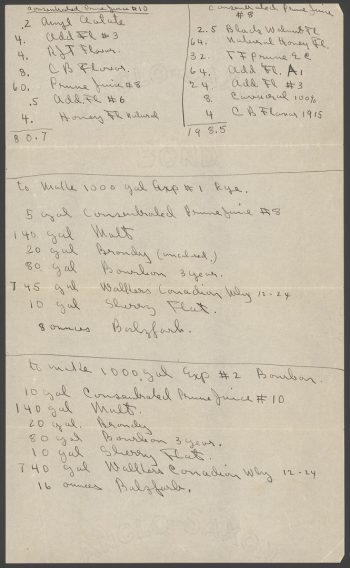 Concentrated Prune Juice #10
.2 Amyl Acetate
4. Add Fl #3
4. RJT Flavor.
8. C B Flavor.
60. Prune Juice #8
.5 Add. Fl #6
4. Honey Fl Natural
80.7
Concentrated Prune Juice
#8
2.5 Black Walnut Fl
64. Natural Honey Fl.
32. FF Prune
64. Add Fl. A1
24 Add Fl #3
8. 100%
4 C B Flavor 1915
198.5
to Make 1000 gal Exp #1 Rye.
5 gal Consentrated Prune Juice #8
140 gal Malt
20 gal Brandy
80 gal Bourbon 3 year.
745 gal Walkers Canadian Why 12-24
10 gal Sherry Flat.
8 ounces Balzfarb.
to make 1000 gal Exp #2 Bourbon.
10 gal Consentrated Prune Juice #10
140 gal Malt.
20 gal. Brandy
80 gal Bourbon 3 year.
10 gal Sherry Flat.
740 gal Walkers Canadian Why 12-24
16 ounces Balzfarb.